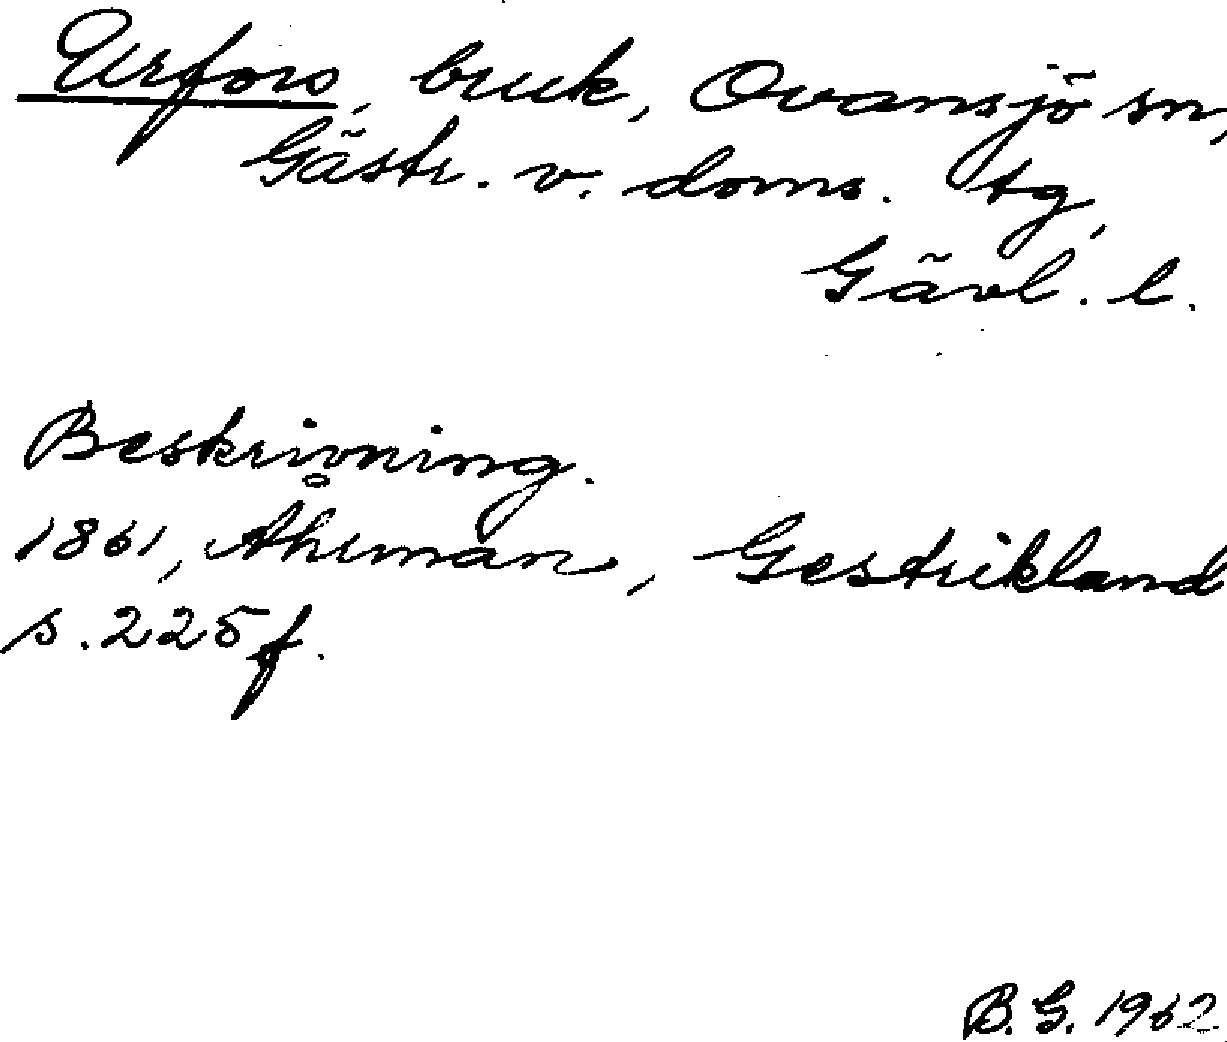 Urfors, bruk, Ovansjö sn,
Gästr. v. doms. tg,
Gävl. l.
Beskrivning.
1861, Ahrman, Gestrikland
s. 225 f.
B. G. 1962